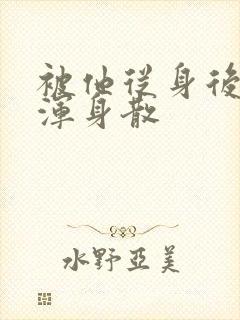 被他從身後
渾身散
水野亞美